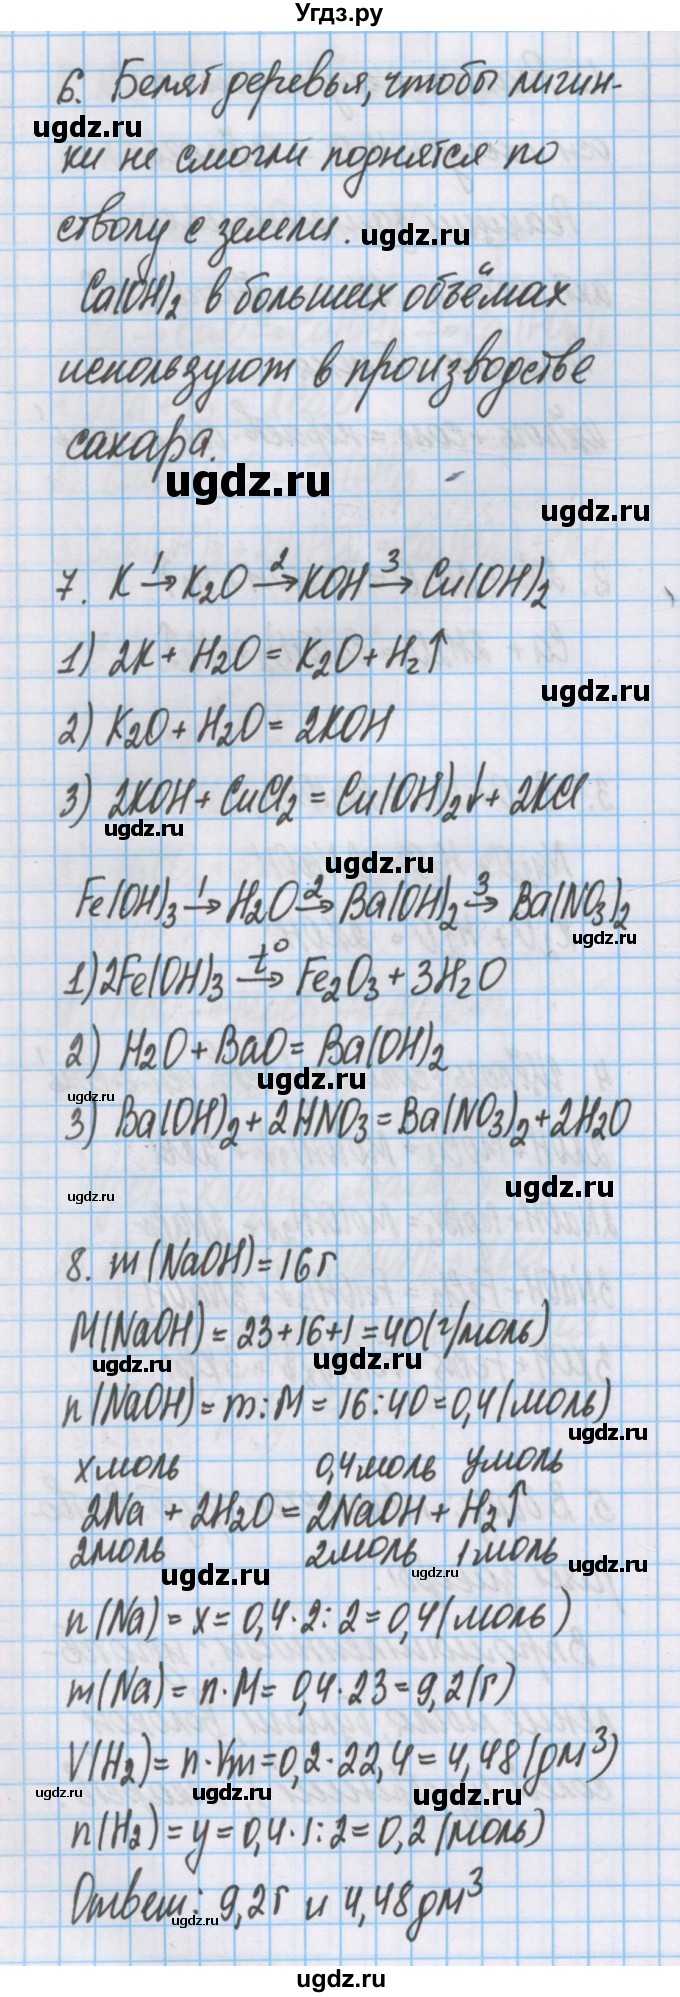 Угдз.ру
6. Белят деревья, чтобы личин-
ugdz.ru
ки не смогли поднятся по
стволу с земли.
ugdz.ru
Ca(OH)₂ в больших объёмах
используют в производстве
сахара.
ugdz.ru
ugdz.ru
7. K →¹ K₂O →² KOH →³ Cu(OH)₂
1) 2K + H₂O = K₂O + H₂↑
ugdz.ru
2) K₂O + H₂O = 2KOH
3) 2KOH + CuCl₂ = Cu(OH)₂↓ + 2KCl
ugdz.ru
ugdz.ru
Fe(OH)₃ →¹ H₂O →² Ba(OH)₂ →³ Ba(NO₃)₂
ugdz.ru
1) 2Fe(OH)₃ →t° Fe₂O₃ + 3H₂O
2) H₂O + BaO = Ba(OH)₂
ugdz.ru
ugdz.ru
3) Ba(OH)₂ + 2HNO₃ = Ba(NO₃)₂ + 2H₂O
ugdz.ru
ugdz.ru
8. m(NaOH) = 16г
M(NaOH) = 23+16+1 = 40(г/моль)
ugdz.ru
ugdz.ru
n(NaOH) = m:M = 16:40 = 0,4(моль)
ugdz.ru
x моль 0,4 моль y моль
2Na + 2H₂O = 2NaOH + H₂↑
2 моль 2 моль 1 моль
ugdz.ru
ugdz.ru
ugdz.ru
n(Na) = x = 0,4·2:2 = 0,4(моль)
m(Na) = n·M = 0,4·23 = 9,2(г)
V(H₂) = n·Vm = 0,2·22,4 = 4,48(дм³)
ugdz.ru
ugdz.ru
ugdz.ru
n(H₂) = y = 0,4·1:2 = 0,2(моль)
Ответ: 9,2г и 4,48дм³
ugdz.ru
ugdz.ru